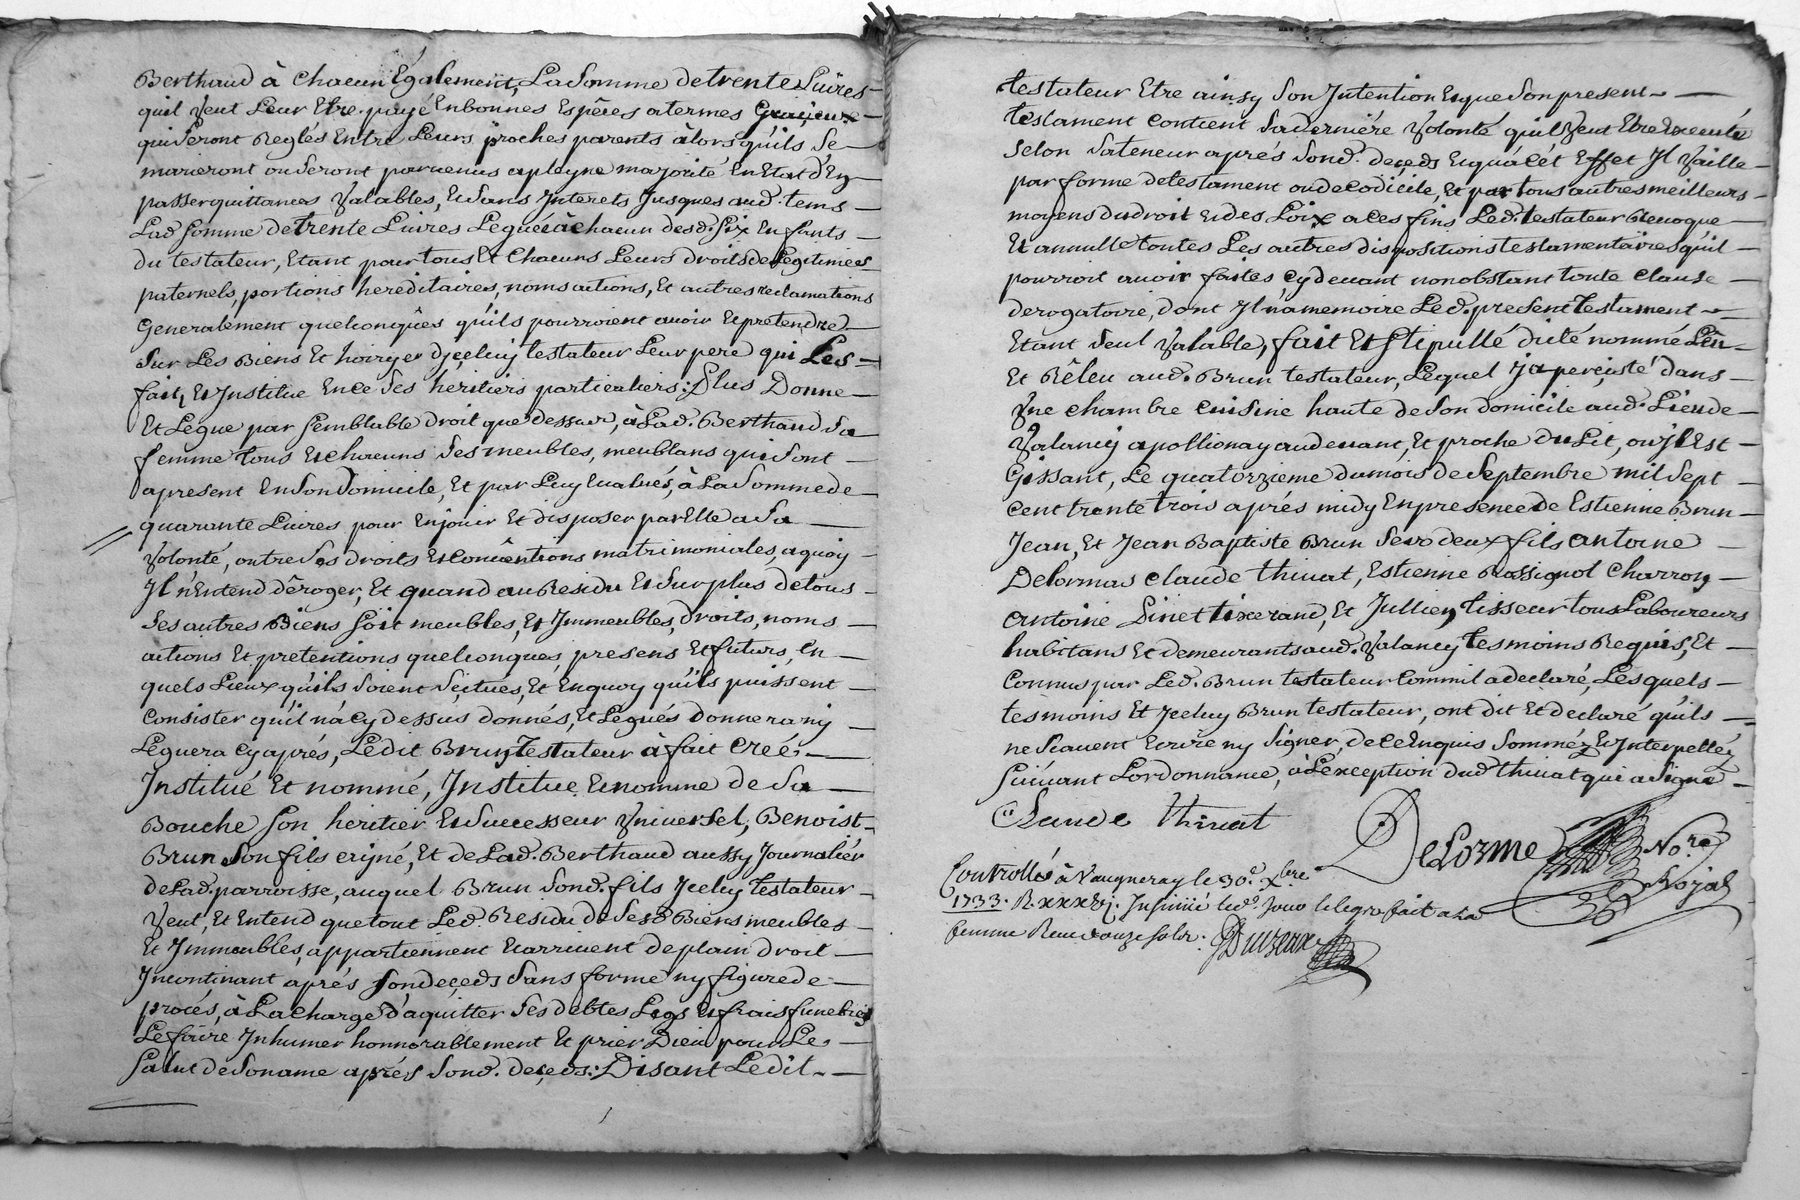 Berthaud à Chacun Egalement, La Somme de trente Livres
quil veut Leur Etre payé En bonnes Espêces a termes Gracieux
qui Seront Reglés Entre Leurs proches parents à lors qu'ils Se
marieront ou Seront parvenus a pleyne majorité En Etat d'En
passer quittances valables, Et Sans Interets Jusques aud. tems
Lad. Somme de trente Livres Leguée à chacun desd. Six Enfants
du testateur, Etant pour tous Et Chacuns Leurs droits de Legitimes
paternels, portions hereditaires, noms actions, Et autres reclamations
Generalement quelconques qu'ils pourroient avoir Et pretendre
Sur Les Biens Et hoirye d'jceluy testateur Leur pere qui Les
fait, Et Institue En ce Ses heritiers particuliers; Plus Donne
Et Legue par Semblable droit que dessus, à Lad. Berthaud Sa
femme tous Et chacuns Ses meubles, meublans qui Sont
a present En Son Domicile, Et par Luy Evalués, à La Somme de
quarante Livres pour En jouir Et disposer par Elle a Sa
volonté, outre Ses droits Et Conventions matrimoniales, a quoy
Il n'Entend déroger, Et quand au Residu Et Surplus de tous
Ses autres Biens Soit meubles, Et Immeubles, droits, noms
actions Et pretentions quelconques, presens Et futurs, En
quels Lieux qu'ils Soient Scitués, Et En quoy qu'ils puissent
Consister qu'il n'à Cy dessus donnés, Et Legués donnera ny
Leguera Cy aprés, Ledit Brun Testateur à fait Creé
Institué Et nommé, Institue Et nomme de Sa
Bouche Son heritier Et Successeur Vniversel, Benoist
Brun Son fils ainé, Et de Lad. Berthaud aussy Journalier
de Lad. parroisse, auquel Brun Sond. fils Jceluy testateur
Veut, Et Entend que tout Led. Residu de Sesd. Biens meubles
Et Immeubles, appartiennent Et arrivent de plain droit
Incontinant aprés Son deceds Sans forme ny figure de
procés, à La charge d'aquitter Ses debtes Legs Et frais funebres
Le faire Inhumer honnorablement Et prier Dieu pour Le
Salut de Son ame aprés Sond. deceds; Disant Ledit
testateur Etre ainsy Son Intention Et que Son present
testament contient Sa derniére volonté qu'il veut Etre Executé
Selon Sa teneur aprés Sond. deceds Et qu'à cét Effet Il vaille
par forme de testament ou de Codicile, Et par tous autres meilleurs
moyens du droit Et des Loix a ces fins Led. testateur Revoque
Et annulle toutes Les autres dispositions testamentaires qu'il
pourroit avoir faites, cy devant nonobstant toute clause
derogatoire, dont Il n'a memoire Led. present testament
Etant Seul valable, fait Et Stipullé dicté nommé Leu
Et Rêleu aud. Brun testateur, Lequel y a percisté dans
Vne chambre cuisine haute de Son domicile aud. Lieu de
Valancy apollionay au devant, Et proche du Lit, ou jl Est
Gissant, Le quatorzieme du mois de Septembre mil Sept
Cent trente trois aprés midy En presence de Estienne Brun
Jean, Et Jean Baptiste Brun Ses deux fils antoine
Delormas Claude thivat, Estienne Rossignol Charron
antoine Pinet tixerand, Et Jullien tisseur tous Laboureurs
habitans Et demeurants aud. Valancy tesmoins Requis, Et
Connus par Led. Brun testateur Comm'il a declaré, Lesquels
tesmoins Et Jceluy Brun testateur, ont dit Et declaré qu'ils
ne Scavent Ecrire ny Signer, de ce Enquis Sommés Et Interpellés
Suivant Lordonnance, à L'exception dud. thivat qui a Signé
Claude thivat
DeLorme No.re
Royal
Controllé à Vaugneray le 30.e Xbre
1733. R. Insinué led. Jour
femme